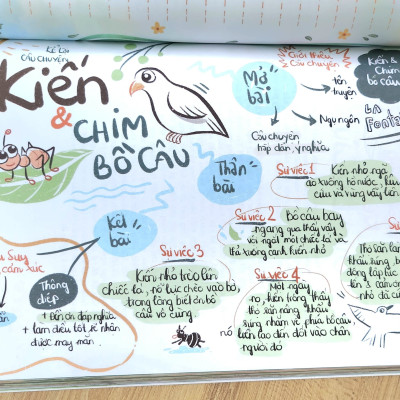 KỂ LẠI
CÂU CHUYỆN
Kiến
& CHIM
BỒ CÂU
Mở
bài
Giới thiệu
câu chuyện
tên
truyện
Ngụ ngôn
Kiến
& Chim
bồ câu
La
Fonta
Câu chuyện
hấp dẫn, ý nghĩa
Thân
bài
Sự việc 1
Kiến nhỏ ngã
ào xuống hồ nước, kêu
cứu và vùng vẫy liên
Sự việc 2
Bồ câu bay
ngang qua thấy vậy
vội ngắt một chiếc lá và
thả xuống cạnh kiến nhỏ
Sự việc 3
Kiến nhỏ trèo lên
chiếc lá, nỗ lực chèo vào bờ,
trong lòng biết ơn bồ
câu vô cùng.
Sự việc 4
Một ngày
nọ, kiến trông thấy
thợ săn nâng khẩu
súng nhắm về phía bồ câu,
nó liền lao đến đốt vào chân
người đó
Sự
Thợ săn la
khẩu súng,
động lập tức
lên & cảm ơn
nhỏ đã cứ
Kết
bài
Suy
cảm xúc
Thông
điệp
+ Đền ơn đáp nghĩa
+ Làm điều tốt sẽ nhận
được may mắn.